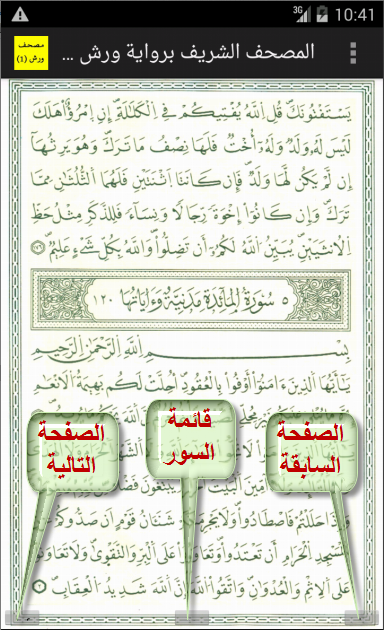 3G 10:41
مصحف
ورش (1)
المصحف الشريف برواية ورش ...
يَسْتَفْتُونَكَ قُلِ اِللَّهُ يُفْتِيكُمْ فِي اِلْكَلَٰلَةِ إِنِ اِمْرُؤٌاْ هَلَكَ
لَيْسَ لَهُۥ وَلَدٌ وَلَهُۥٓ أُخْتٌ فَلَهَا نِصْفُ مَا تَرَكَ وَهُوَ يَرِثُهَآ
إِن لَّمْ يَكُن لَّهَا وَلَدٌ فَإِن كَانَتَا اَثْنَتَيْنِ فَلَهُمَا اَلثُّلُثَٰنِ مِمَّا
تَرَكَ وَإِن كَانُوٓاْ إِخْوَةً رِّجَالًا وَنِسَآءً فَلِلذَّكَرِ مِثْلُ حَظِّ
اِلْأُنثَيَيْنِ يُبَيِّنُ اُللَّهُ لَكُمْ أَن تَضِلُّواْ وَاللَّهُ بِكُلِّ شَےْءٍ عَلِيمٌ
٥ سُورَةُ الْمَائِدَةِ مَدَنِيَّةٌ وَءَايَاتُهَا ١٢٠
بِسْمِ اِللَّهِ اِلرَّحْمَٰنِ اِلرَّحِيمِ
يَٰٓأَيُّهَا اَلذِينَ ءَامَنُوٓاْ أَوْفُواْ بِالْعُقُودِ أُحِلَّتْ لَكُم بَهِيمَةُ اُلْأَنْعَٰمِ
الصفحة
التالية
قائمة
السور
الصفحة
السابقة
وَإِذَا حَلَلْتُمْ فَاصْطَادُواْ وَلَا يَجْرِمَنَّكُمْ شَنَـَٔانُ قَوْمٍ أَن صَدُّوكُمْ
اَلْمَسْجِدِ اِلْحَرَامِ أَن تَعْتَدُواْ وَتَعَاوَنُواْ عَلَى اَلْبِرِّ وَالتَّقْوَىٰ وَلَا تَعَاوَنُواْ
عَلَى اَلْإِثْمِ وَالْعُدْوَٰنِ وَاتَّقُواْ اُللَّهَ إِنَّ اَللَّهَ شَدِيدُ اُلْعِقَابِ